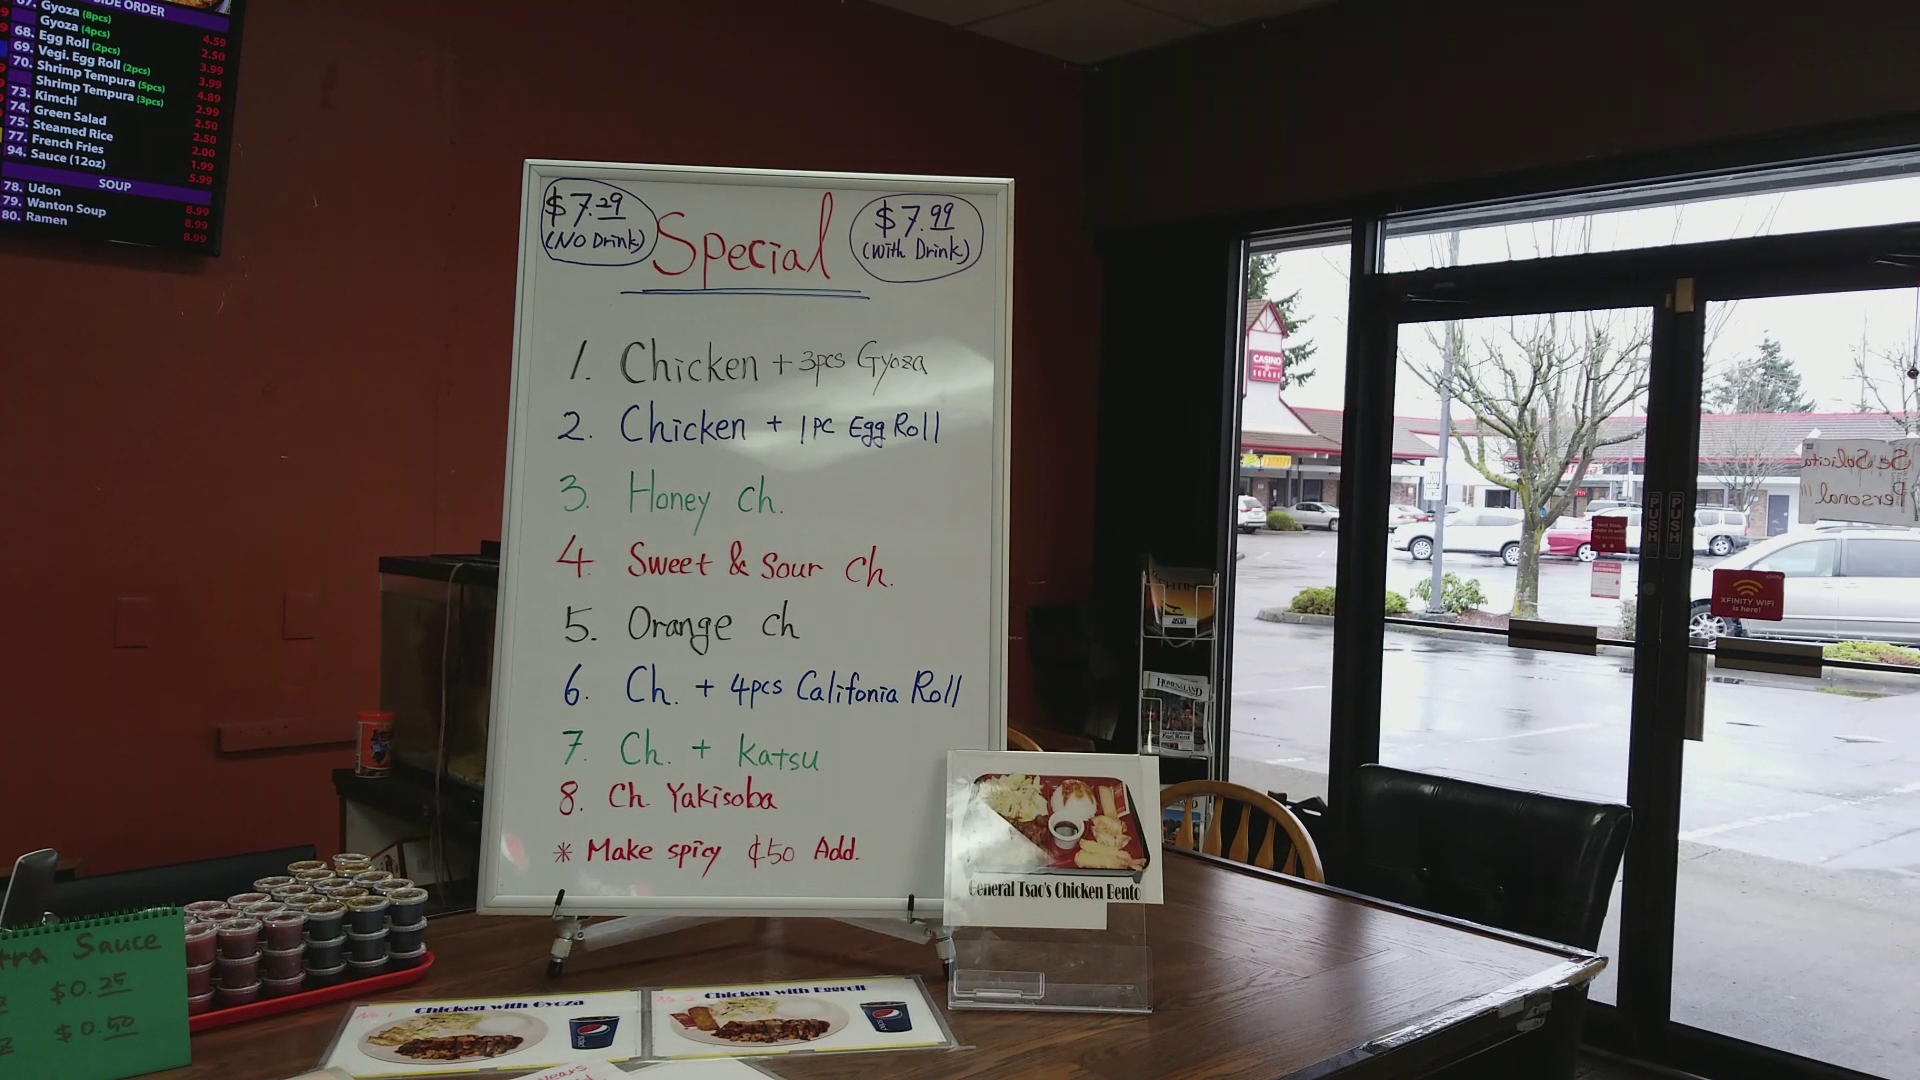 SIDE ORDER
67. Gyoza (8pcs) 4.59
Gyoza (4pcs) 2.50
68. Egg Roll (2pcs) 3.99
69. Vegi. Egg Roll (2pcs) 3.99
70. Shrimp Tempura (5pcs) 4.89
Shrimp Tempura (3pcs) 2.99
73. Kimchi 2.50
74. Green Salad 2.50
75. Steamed Rice 2.00
77. French Fries 1.99
94. Sauce (12oz) 5.99
SOUP
78. Udon 8.99
79. Wanton Soup 8.99
80. Ramen 8.99
$7.29
(No Drink)
Special
$7.99
(With Drink)
1. Chicken + 3pcs Gyoza
2. Chicken + 1PC Egg Roll
3. Honey Ch.
4. Sweet & Sour Ch.
5. Orange ch
6. Ch. + 4pcs Califonia Roll
7. Ch. + Katsu
8. Ch. Yakisoba
* Make spicy ¢50 Add.
General Tsao's Chicken Bento
tra Sauce
$0.25
$0.50
No 1 Chicken with Gyoza
pepsi
No 2 Chicken with Eggroll
pepsi
years
CASINO
SQUARE
Se Solicita
Personal!!
PUSH
PUSH
XFINITY WIFI
is here!